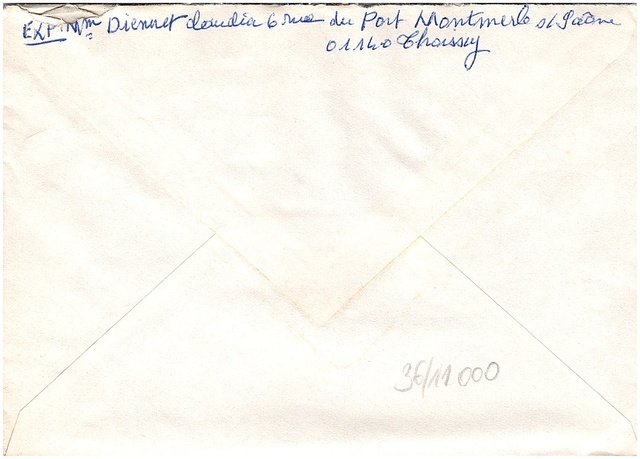 EXP. Mme Diennet Claudia 6 rue du Port Montmerle s/Saône
01140 Thoissey
36/11 000